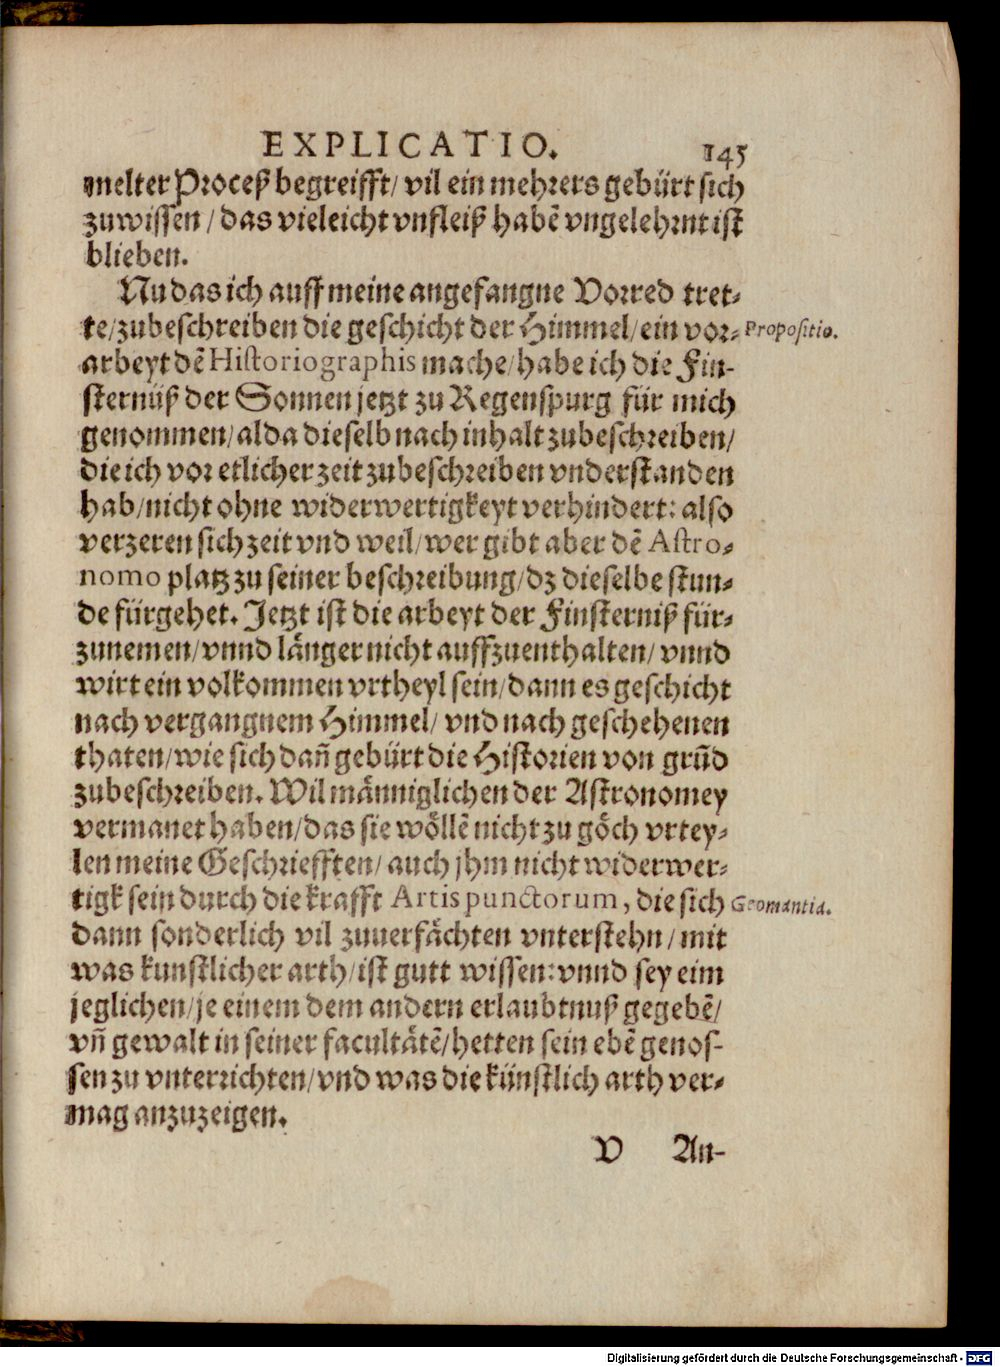 EXPLICATIO. 145
melter Proceß begreifft/ vil ein mehrers gebürt sich
zuwissen/ das vieleicht vnfleiß habē vngelehrnt ist
blieben.
Nu das ich auff meine angefangne Vorred tret-
te/zubeschreiben die geschicht der Himmel/ein vor- Propositio.
arbeyt dē Historiographis mache/habe ich die Fin-
sternüß der Sonnen jetzt zu Regenspurg für mich
genommen/alda dieselb nach inhalt zubeschreiben/
die ich vor etlicher zeit zubeschreiben vnderstanden
hab/nicht ohne widerwertigkeyt verhindert: also
verzeren sich zeit vnd weil/wer gibt aber dē Astro-
nomo platz zu seiner beschreibung/dz dieselbe stun-
de fürgehet. Jetzt ist die arbeyt der Finsterniß für-
zunemen/vnnd länger nicht auffzuenthalten/ vnnd
wirt ein volkommen vrtheyl sein/dann es geschicht
nach vergangnem Himmel/ vnd nach geschehenen
thaten/wie sich dañ gebürt die Historien von grūd
zubeschreiben. Wil männiglichen der Astronomey
vermanet haben/das sie wöllē nicht zu göch vrtey-
len meine Geschriefften/ auch jhm nicht widerwer-
tigk sein durch die krafft Artis punctorum, die sich Geomantia.
dann sonderlich vil zuuerfächten vnterstehn/mit
was kunstlicher arth/ist gutt wissen: vnnd sey eim
jeglichen/je einem dem andern erlaubtnuß gegebē/
vñ gewalt in seiner facultätē/hetten sein ebē genos-
sen zu vnterrichten/vnd was die künstlich arth ver-
mag anzuzeigen.
V An-
Digitalisierung gefördert durch die Deutsche Forschungsgemeinschaft - DFG